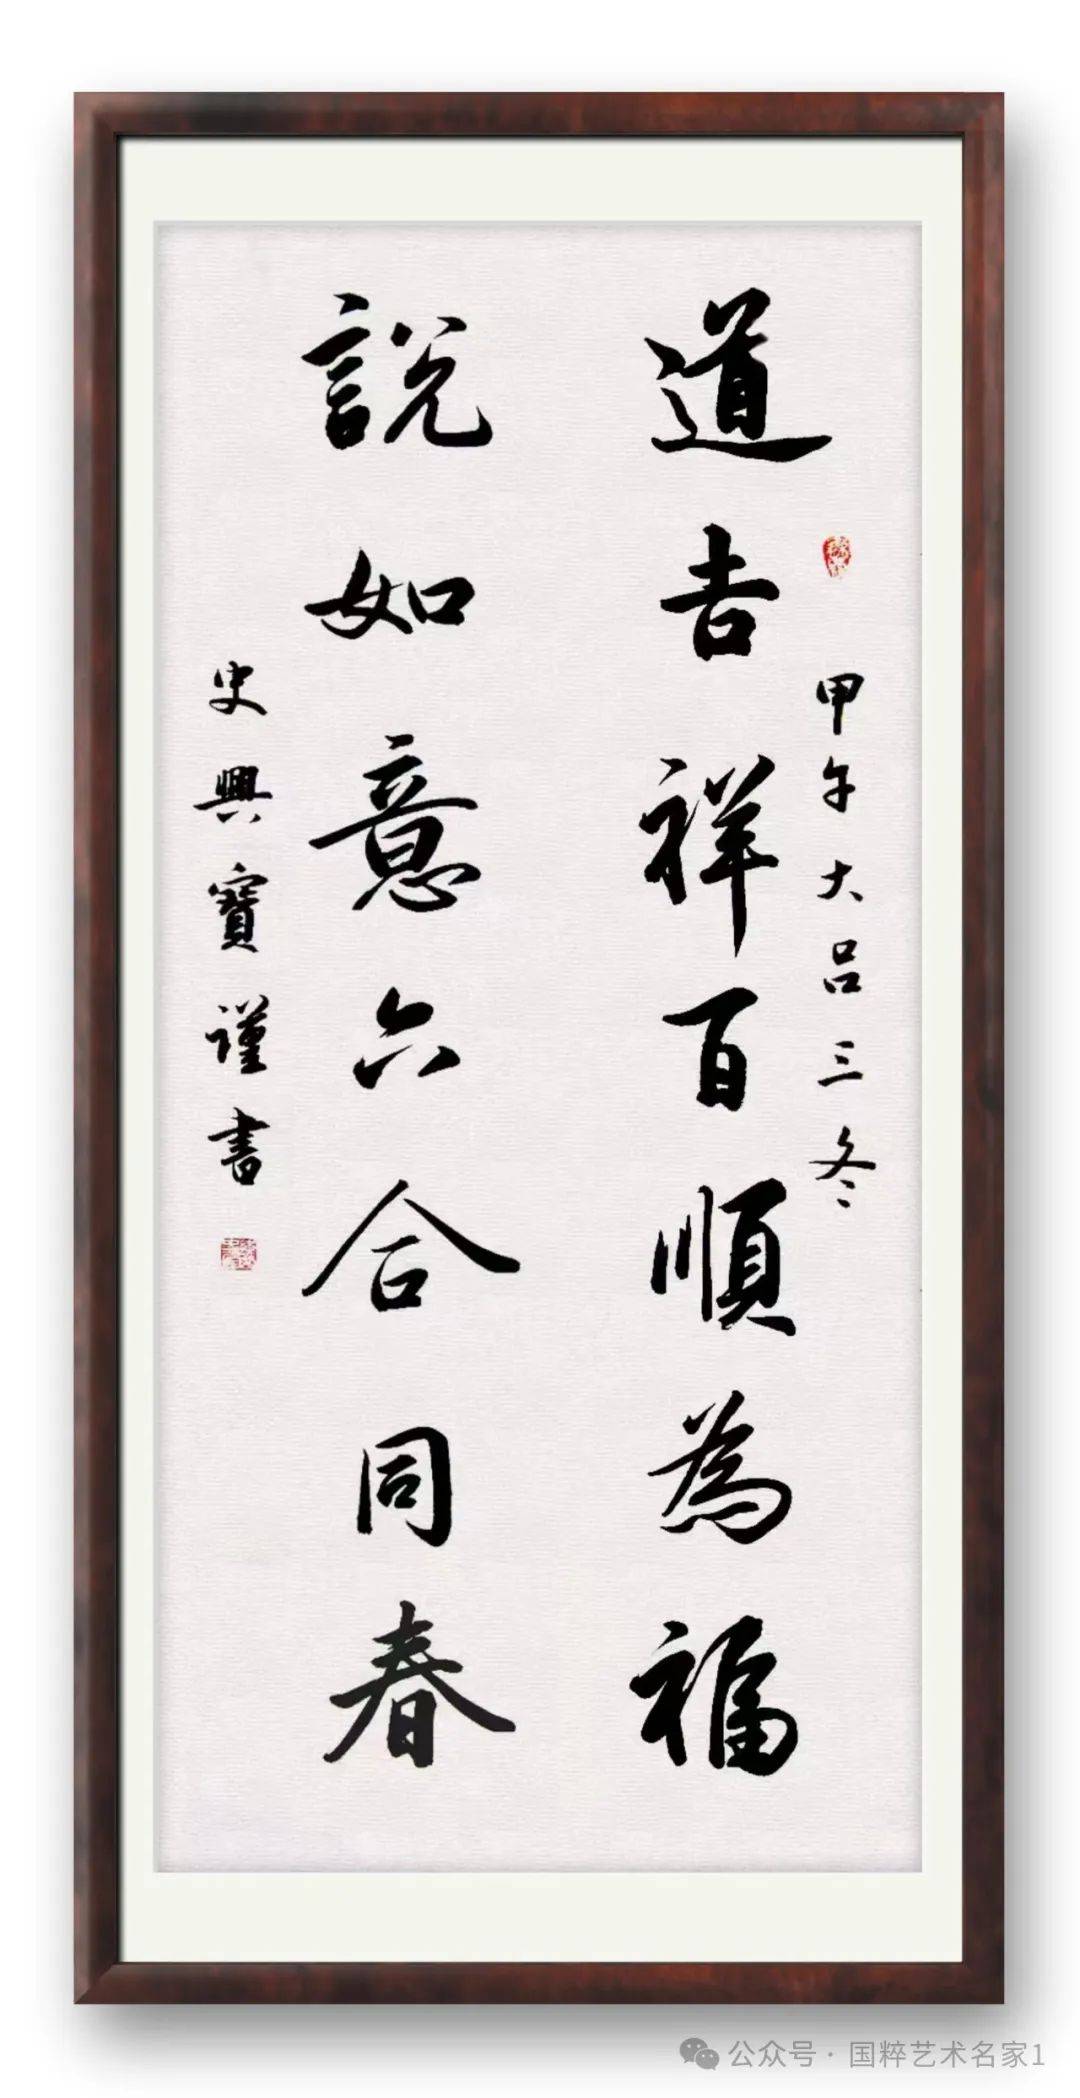 甲午大吕三冬
道吉祥百順為福
說如意六合同春
史興寶謹書
公众号·国粹艺术名家1